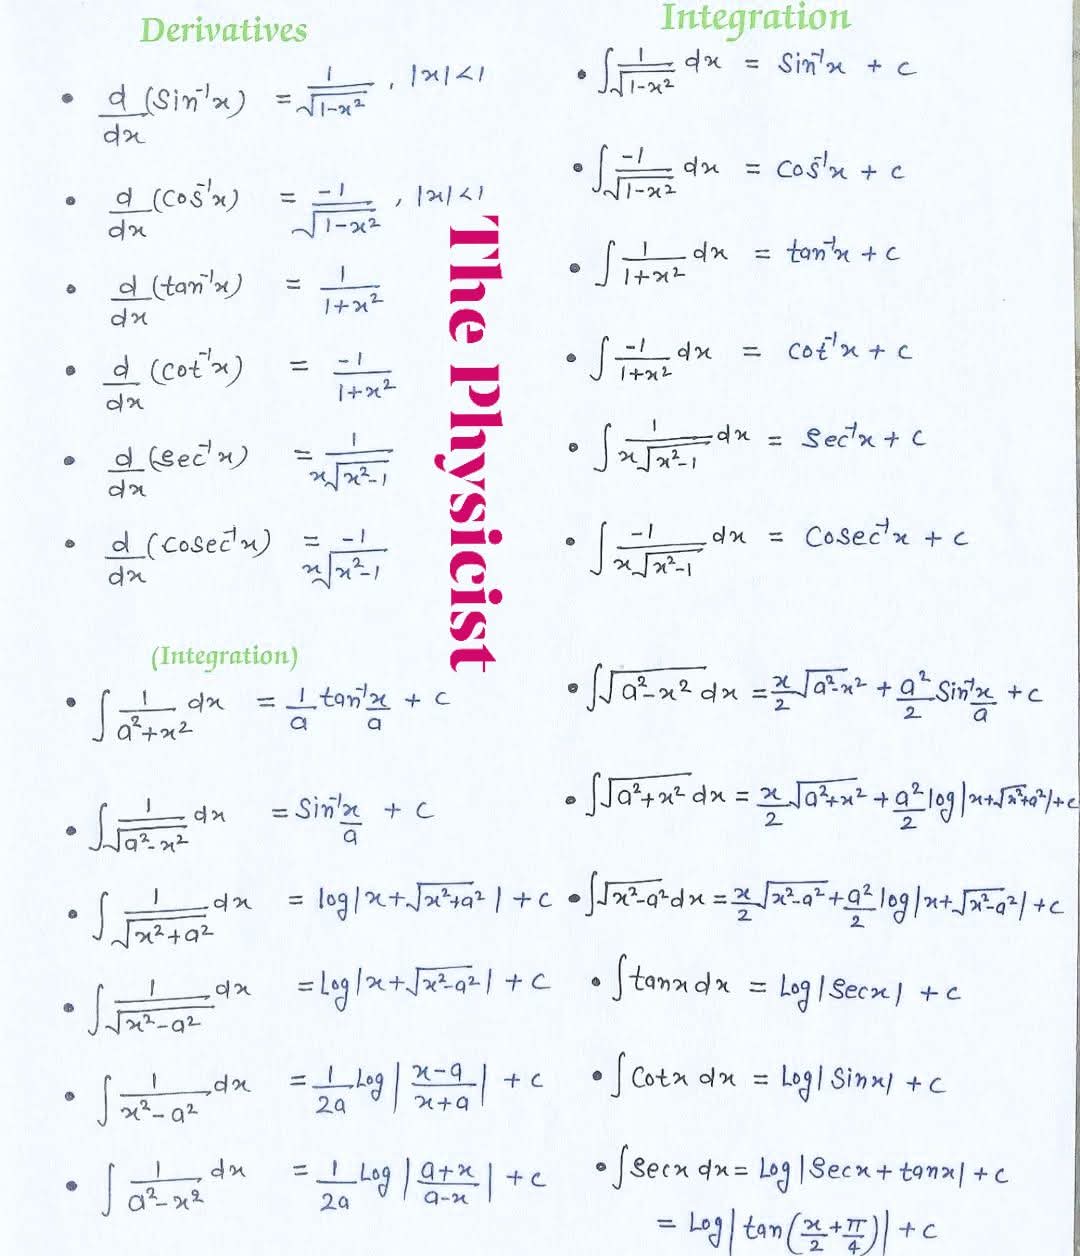 Derivatives
d/dx (Sin⁻¹x) = 1/√(1-x²) , |x|<1
d/dx (Cos⁻¹x) = -1/√(1-x²) , |x|<1
d/dx (tan⁻¹x) = 1/(1+x²)
d/dx (Cot⁻¹x) = -1/(1+x²)
d/dx (Sec⁻¹x) = 1/(x√(x²-1))
d/dx (Cosec⁻¹x) = -1/(x√(x²-1))
Integration
∫ 1/√(1-x²) dx = Sin⁻¹x + c
∫ -1/√(1-x²) dx = Cos⁻¹x + c
∫ 1/(1+x²) dx = tan⁻¹x + c
∫ -1/(1+x²) dx = Cot⁻¹x + c
∫ 1/(x√(x²-1)) dx = Sec⁻¹x + c
∫ -1/(x√(x²-1)) dx = Cosec⁻¹x + c
The Physicist
(Integration)
∫ 1/(a²+x²) dx = 1/a tan⁻¹ x/a + c
∫ 1/√(a²-x²) dx = Sin⁻¹ x/a + c
∫ 1/√(x²+a²) dx = log|x+√(x²+a²)| + c
∫ 1/√(x²-a²) dx = Log|x+√(x²-a²)| + c
∫ 1/(x²-a²) dx = 1/2a Log|(x-a)/(x+a)| + c
∫ 1/(a²-x²) dx = 1/2a Log|(a+x)/(a-x)| + c
∫√(a²-x²) dx = x/2 √(a²-x²) + a²/2 Sin⁻¹ x/a + c
∫√(a²+x²) dx = x/2 √(a²+x²) + a²/2 log|x+√(x²+a²)| + c
∫√(x²-a²) dx = x/2 √(x²-a²) + a²/2 log|x+√(x²-a²)| + c
∫tanx dx = Log|Secx| + c
∫Cotx dx = Log|Sinx| + c
∫Secx dx = Log|Secx + tanx| + c
= Log|tan(x/2 + π/4)| + c